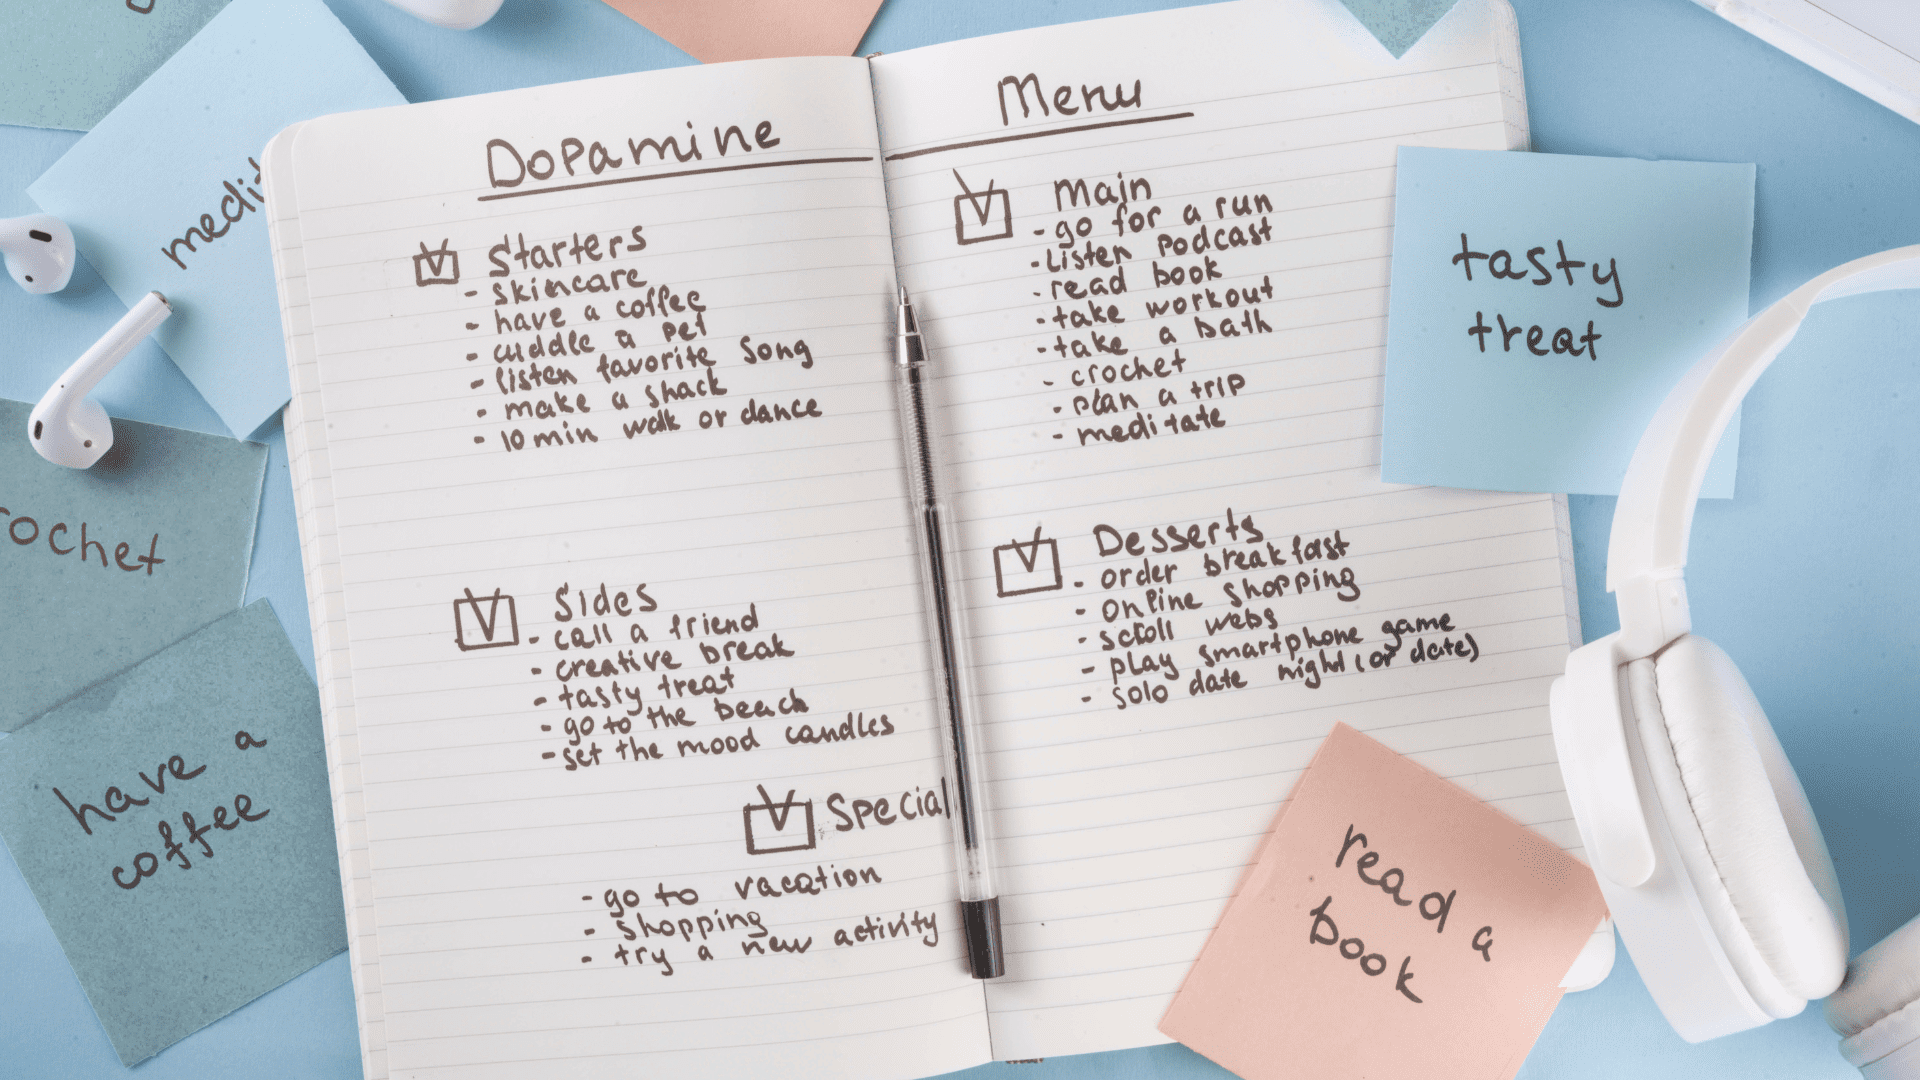 Dopamine Menu
Starters
- skincare
- have a coffee
- cuddle a pet
- listen favorite song
- make a snack
- 10 min walk or dance
Sides
- call a friend
- creative break
- tasty treat
- go to the beach
- set the mood candles
Special
- go to vacation
- shopping
- try a new activity
Main
- go for a run
- listen podcast
- read book
- take workout
- take a bath
- crochet
- plan a trip
- meditate
Desserts
- order breakfast
- online shopping
- scroll webs
- play smartphone game
- solo date night (or date)
medit
rochet
have a
coffee
tasty
treat
read a
book